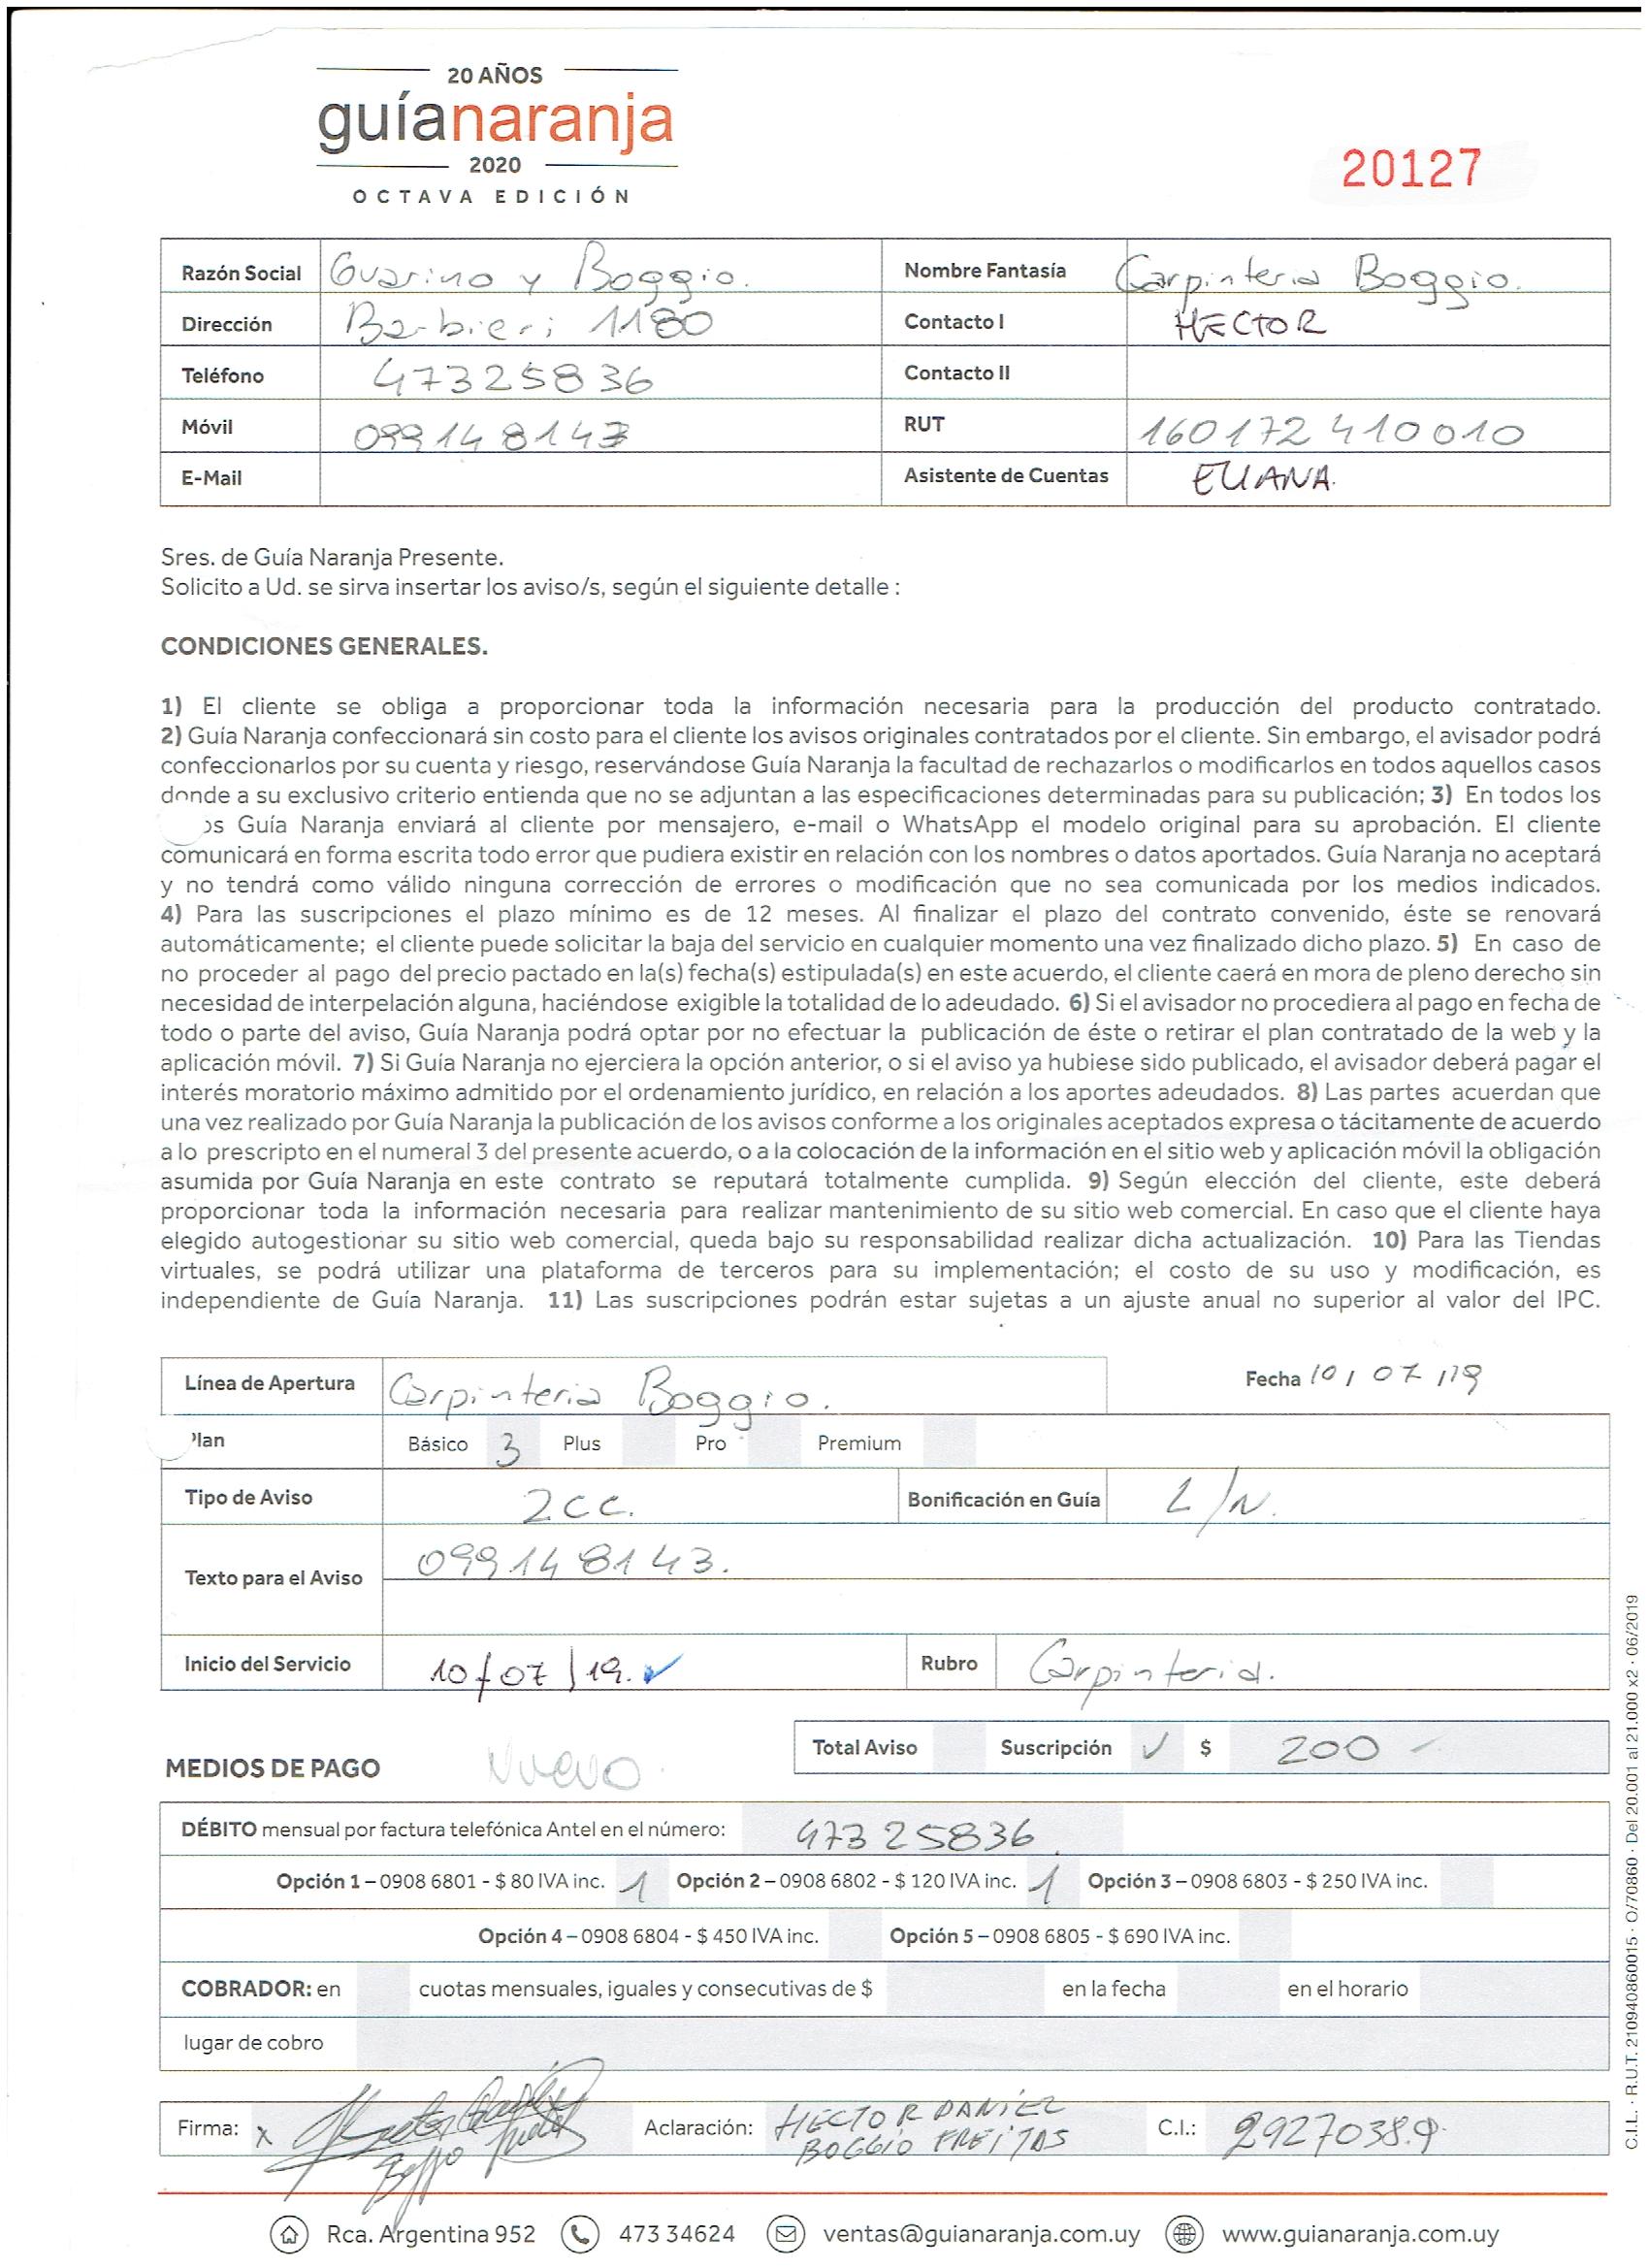 20 AÑOS
guíanaranja
2020
OCTAVA EDICIÓN
20127
Razón Social Guarino y Boggio. Nombre Fantasía Carpinteria Boggio.
Dirección Barbieri 1180 Contacto I HECTOR
Teléfono 47325836 Contacto II
Móvil 099148143 RUT 160172410010
E-Mail Asistente de Cuentas ELIANA.
Sres. de Guía Naranja Presente.
Solicito a Ud. se sirva insertar los aviso/s, según el siguiente detalle :
CONDICIONES GENERALES.
1) El cliente se obliga a proporcionar toda la información necesaria para la producción del producto contratado.
2) Guía Naranja confeccionará sin costo para el cliente los avisos originales contratados por el cliente. Sin embargo, el avisador podrá
confeccionarlos por su cuenta y riesgo, reservándose Guía Naranja la facultad de rechazarlos o modificarlos en todos aquellos casos
donde a su exclusivo criterio entienda que no se adjuntan a las especificaciones determinadas para su publicación; 3) En todos los
os Guía Naranja enviará al cliente por mensajero, e-mail o WhatsApp el modelo original para su aprobación. El cliente
comunicará en forma escrita todo error que pudiera existir en relación con los nombres o datos aportados. Guía Naranja no aceptará
y no tendrá como válido ninguna corrección de errores o modificación que no sea comunicada por los medios indicados.
4) Para las suscripciones el plazo mínimo es de 12 meses. Al finalizar el plazo del contrato convenido, éste se renovará
automáticamente; el cliente puede solicitar la baja del servicio en cualquier momento una vez finalizado dicho plazo. 5) En caso de
no proceder al pago del precio pactado en la(s) fecha(s) estipulada(s) en este acuerdo, el cliente caerá en mora de pleno derecho sin
necesidad de interpelación alguna, haciéndose exigible la totalidad de lo adeudado. 6) Si el avisador no procediera al pago en fecha de
todo o parte del aviso, Guía Naranja podrá optar por no efectuar la publicación de éste o retirar el plan contratado de la web y la
aplicación móvil. 7) Si Guía Naranja no ejerciera la opción anterior, o si el aviso ya hubiese sido publicado, el avisador deberá pagar el
interés moratorio máximo admitido por el ordenamiento jurídico, en relación a los aportes adeudados. 8) Las partes acuerdan que
una vez realizado por Guía Naranja la publicación de los avisos conforme a los originales aceptados expresa o tácitamente de acuerdo
a lo prescripto en el numeral 3 del presente acuerdo, o a la colocación de la información en el sitio web y aplicación móvil la obligación
asumida por Guía Naranja en este contrato se reputará totalmente cumplida. 9) Según elección del cliente, este deberá
proporcionar toda la información necesaria para realizar mantenimiento de su sitio web comercial. En caso que el cliente haya
elegido autogestionar su sitio web comercial, queda bajo su responsabilidad realizar dicha actualización. 10) Para las Tiendas
virtuales, se podrá utilizar una plataforma de terceros para su implementación; el costo de su uso y modificación, es
independiente de Guía Naranja. 11) Las suscripciones podrán estar sujetas a un ajuste anual no superior al valor del IPC.
Línea de Apertura Carpinteria Boggio. Fecha 10/07/19
Plan Básico 3 Plus Pro Premium
Tipo de Aviso 2cc. Bonificación en Guía L/N.
Texto para el Aviso 099148143.
Inicio del Servicio 10/07/19. ✓ Rubro Carpinteria.
Total Aviso Suscripción ✓ $ 200 -
MEDIOS DE PAGO Nuevo
DÉBITO mensual por factura telefónica Antel en el número: 47325836
Opción 1 – 0908 6801 - $ 80 IVA inc. 1 Opción 2 – 0908 6802 - $ 120 IVA inc. 1 Opción 3 – 0908 6803 - $ 250 IVA inc.
Opción 4 – 0908 6804 - $ 450 IVA inc. Opción 5 – 0908 6805 - $ 690 IVA inc.
COBRADOR: en cuotas mensuales, iguales y consecutivas de $ en la fecha en el horario
lugar de cobro
Firma: x Aclaración: HECTOR DANIEL BOGGIO FREITAS C.I.: 29270389
Rca. Argentina 952 473 34624 ventas@guianaranja.com.uy www.guianaranja.com.uy
C.I.L. · R.U.T. 210940860015 · O/70860 · Del 20.001 al 21.000 x2 · 06/2019